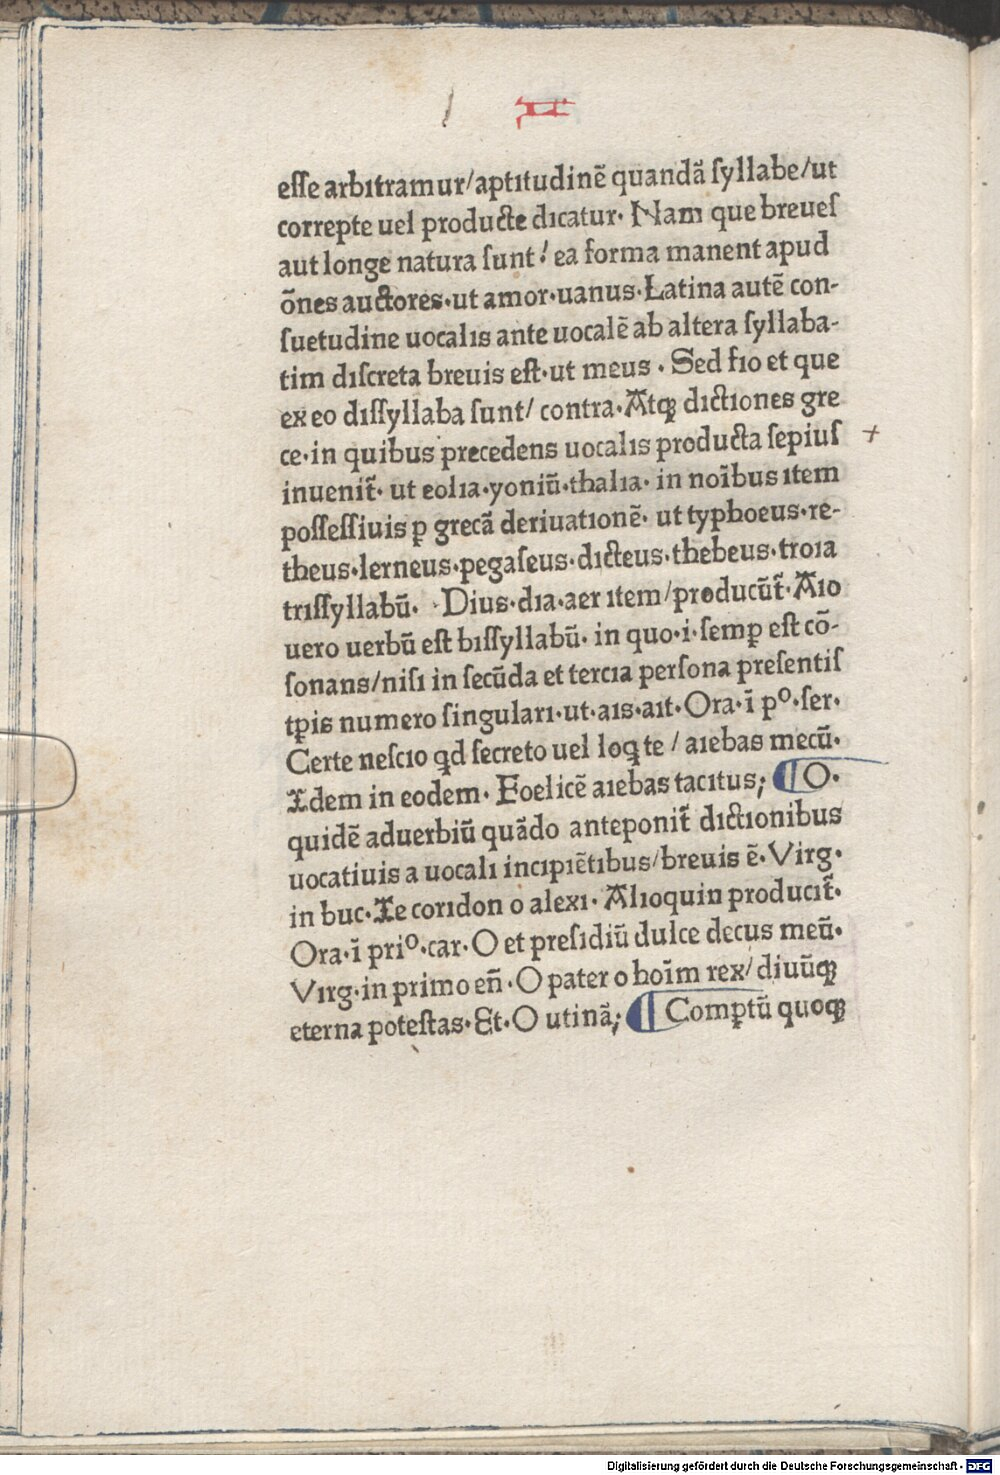 esse arbitramur/aptitudinē quandā syllabe/ut
correpte uel producte dicatur· Nam que breues
aut longe natura sunt: ea forma manent apud
ōnes auctores·ut amor·uanus·Latina autē con-
suetudine uocalis ante uocalē ab altera syllaba-
tim discreta breuis est·ut meus· Sed fio et que
ex eo dissyllaba sunt/ contra·Atqꝫ dictiones gre
ce·in quibus precedens uocalis producta sepius
inuenit̄· ut eolia·yoniū·thalia· in noībus item
possessiuis ꝑ grecā deriuationē· ut typhoeus·re-
theus·lerneus·pegaseus·dicteus·thebeus·troia
trissyllabū· Dius·dia·aer item/producūt̄·Aio
uero uerbū est bissyllabū· in quo·i·semꝑ est cō-
sonans/nisi in secūda et tercia persona presentis
tꝑis numero singulari·ut·ais·ait·Ora·ī pº·ser·
Certe nescio qd secreto uel loqꝫ te / aiebas mecū·
Idem in eodem· Foelicē aiebas tacitus; ¶ O·
quidē aduerbiū quādo anteponit̄ dictionibus
uocatiuis a uocali incipiētibus/breuis ē·Virg·
in buc·Te coridon o alexi· Alioquin producit̄·
Ora·ī priº·car·O et presidiū dulce decus meū·
Virg·in primo eñ·O pater o hoīm rex/diuūqꝫ
eterna potestas·Et·O utinā; ¶ Comptū quoqꝫ
Digitalisierung gefördert durch die Deutsche Forschungsgemeinschaft - DFG